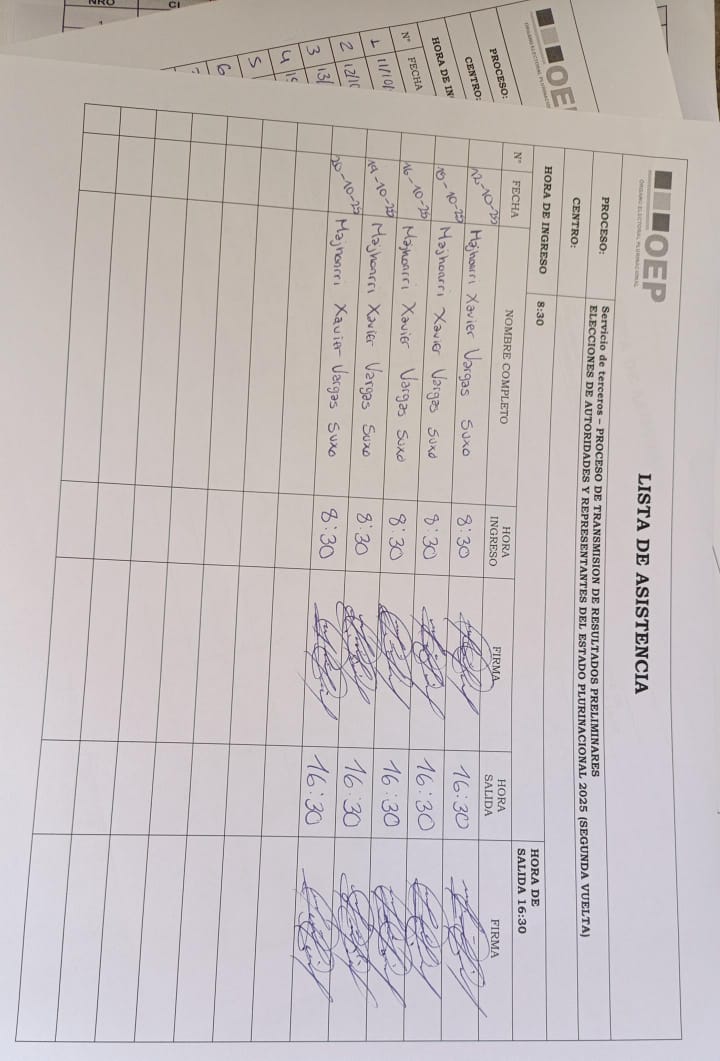 OEP
ÓRGANO ELECTORAL PLURINACIONAL
LISTA DE ASISTENCIA
PROCESO: Servicio de terceros – PROCESO DE TRANSMISION DE RESULTADOS PRELIMINARES
ELECCIONES DE AUTORIDADES Y REPRESENTANTES DEL ESTADO PLURINACIONAL 2025 (SEGUNDA VUELTA)
CENTRO:
HORA DE INGRESO 8:30 HORA DE
SALIDA 16:30
N° FECHA NOMBRE COMPLETO HORA INGRESO FIRMA HORA SALIDA FIRMA
12-10-25 Majhonrri Xavier Vargas Suxo 8:30 16:30
15-10-25 Majhonrri Xavier Vargas Suxo 8:30 16:30
16-10-25 Majhonrri Xavier Vargas Suxo 8:30 16:30
19-10-25 Majhonrri Xavier Vargas Suxo 8:30 16:30
20-10-25 Majhonrri Xavier Vargas Suxo 8:30 16:30
OEP
ÓRGANO ELECTORAL PLURINACION
PROCESO:
CENTRO:
HORA DE IN
N° FECHA
1 11/10/
2 12/10
3 13/
4 15
5
6
7
CI
NRO